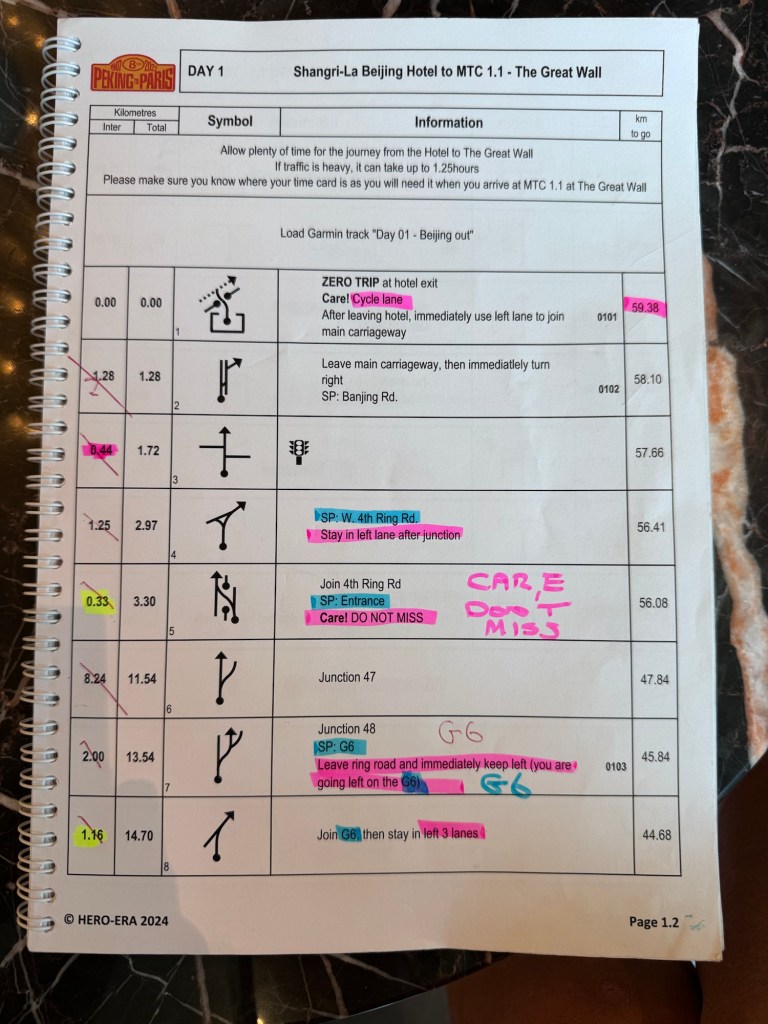 PEKING TO PARIS
DAY 1 Shangri-La Beijing Hotel to MTC 1.1 - The Great Wall
Kilometres
Inter Total Symbol Information km to go
Allow plenty of time for the journey from the Hotel to The Great Wall
If traffic is heavy, it can take up to 1.25hours
Please make sure you know where your time card is as you will need it when you arrive at MTC 1.1 at The Great Wall
Load Garmin track "Day 01 - Beijing out"
ZERO TRIP at hotel exit
Care! Cycle lane
0.00 0.00 1 After leaving hotel, immediately use left lane to join 0101 59.38
main carriageway
Leave main carriageway, then immediatlely turn
1.28 1.28 2 right 0102 58.10
SP: Banjing Rd.
0.44 1.72 3 57.66
1.25 2.97 4 SP: W. 4th Ring Rd. 56.41
Stay in left lane after junction
Join 4th Ring Rd CARE
0.33 3.30 5 SP: Entrance DON'T 56.08
Care! DO NOT MISS MISS
8.24 11.54 6 Junction 47 47.84
Junction 48 G6
SP: G6
2.00 13.54 7 Leave ring road and immediately keep left (you are 0103 45.84
going left on the G6) G6
1.16 14.70 8 Join G6, then stay in left 3 lanes 44.68
© HERO-ERA 2024 Page 1.2